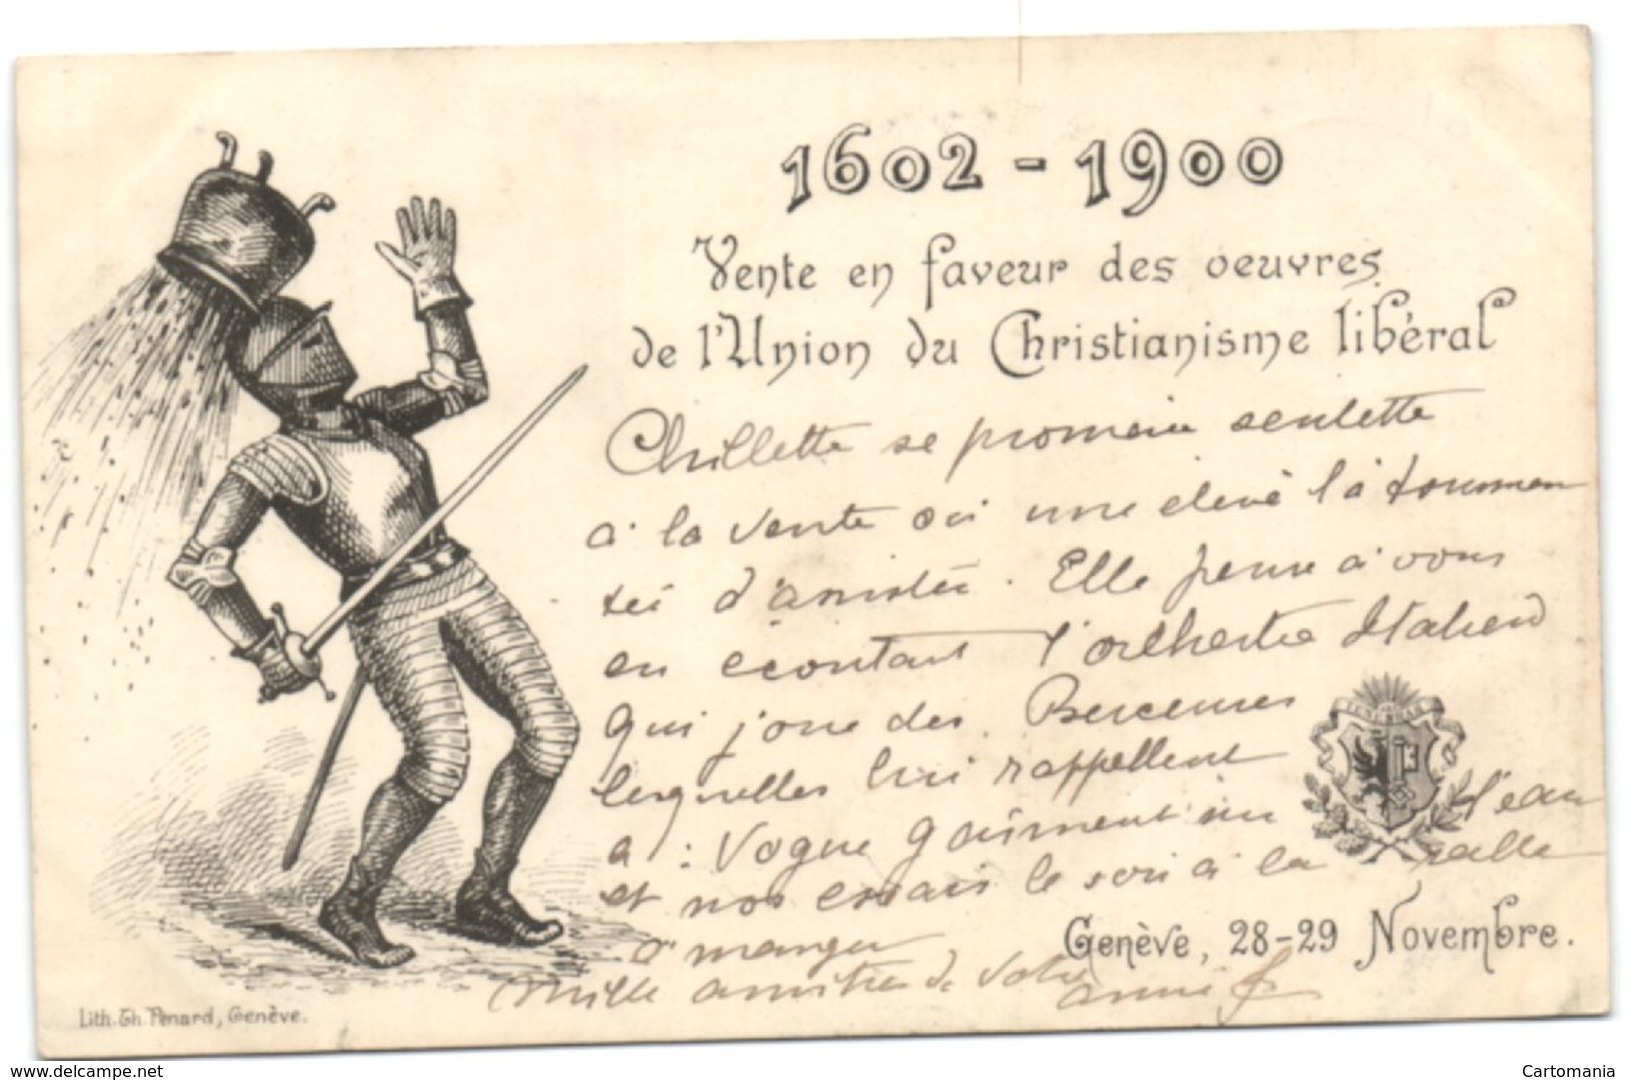 1602 - 1900
Vente en faveur des oeuvres
de l'Union du Christianisme libéral
se seulette
à la vente où une élevé l'a tourmen
tée d'amitié. Elle pense à vous
en écoutant l'orchestre Italien
qui joue des Berceuses
lesquelles lui rappellent
a : Vogue gaîment l'eau
et nos essais le soir à la salle
à manger
Mille amitiés de votre amie
Genève, 28-29 Novembre.
Lith. Th. Penard, Genève.
www.delcampe.net
Cartomania